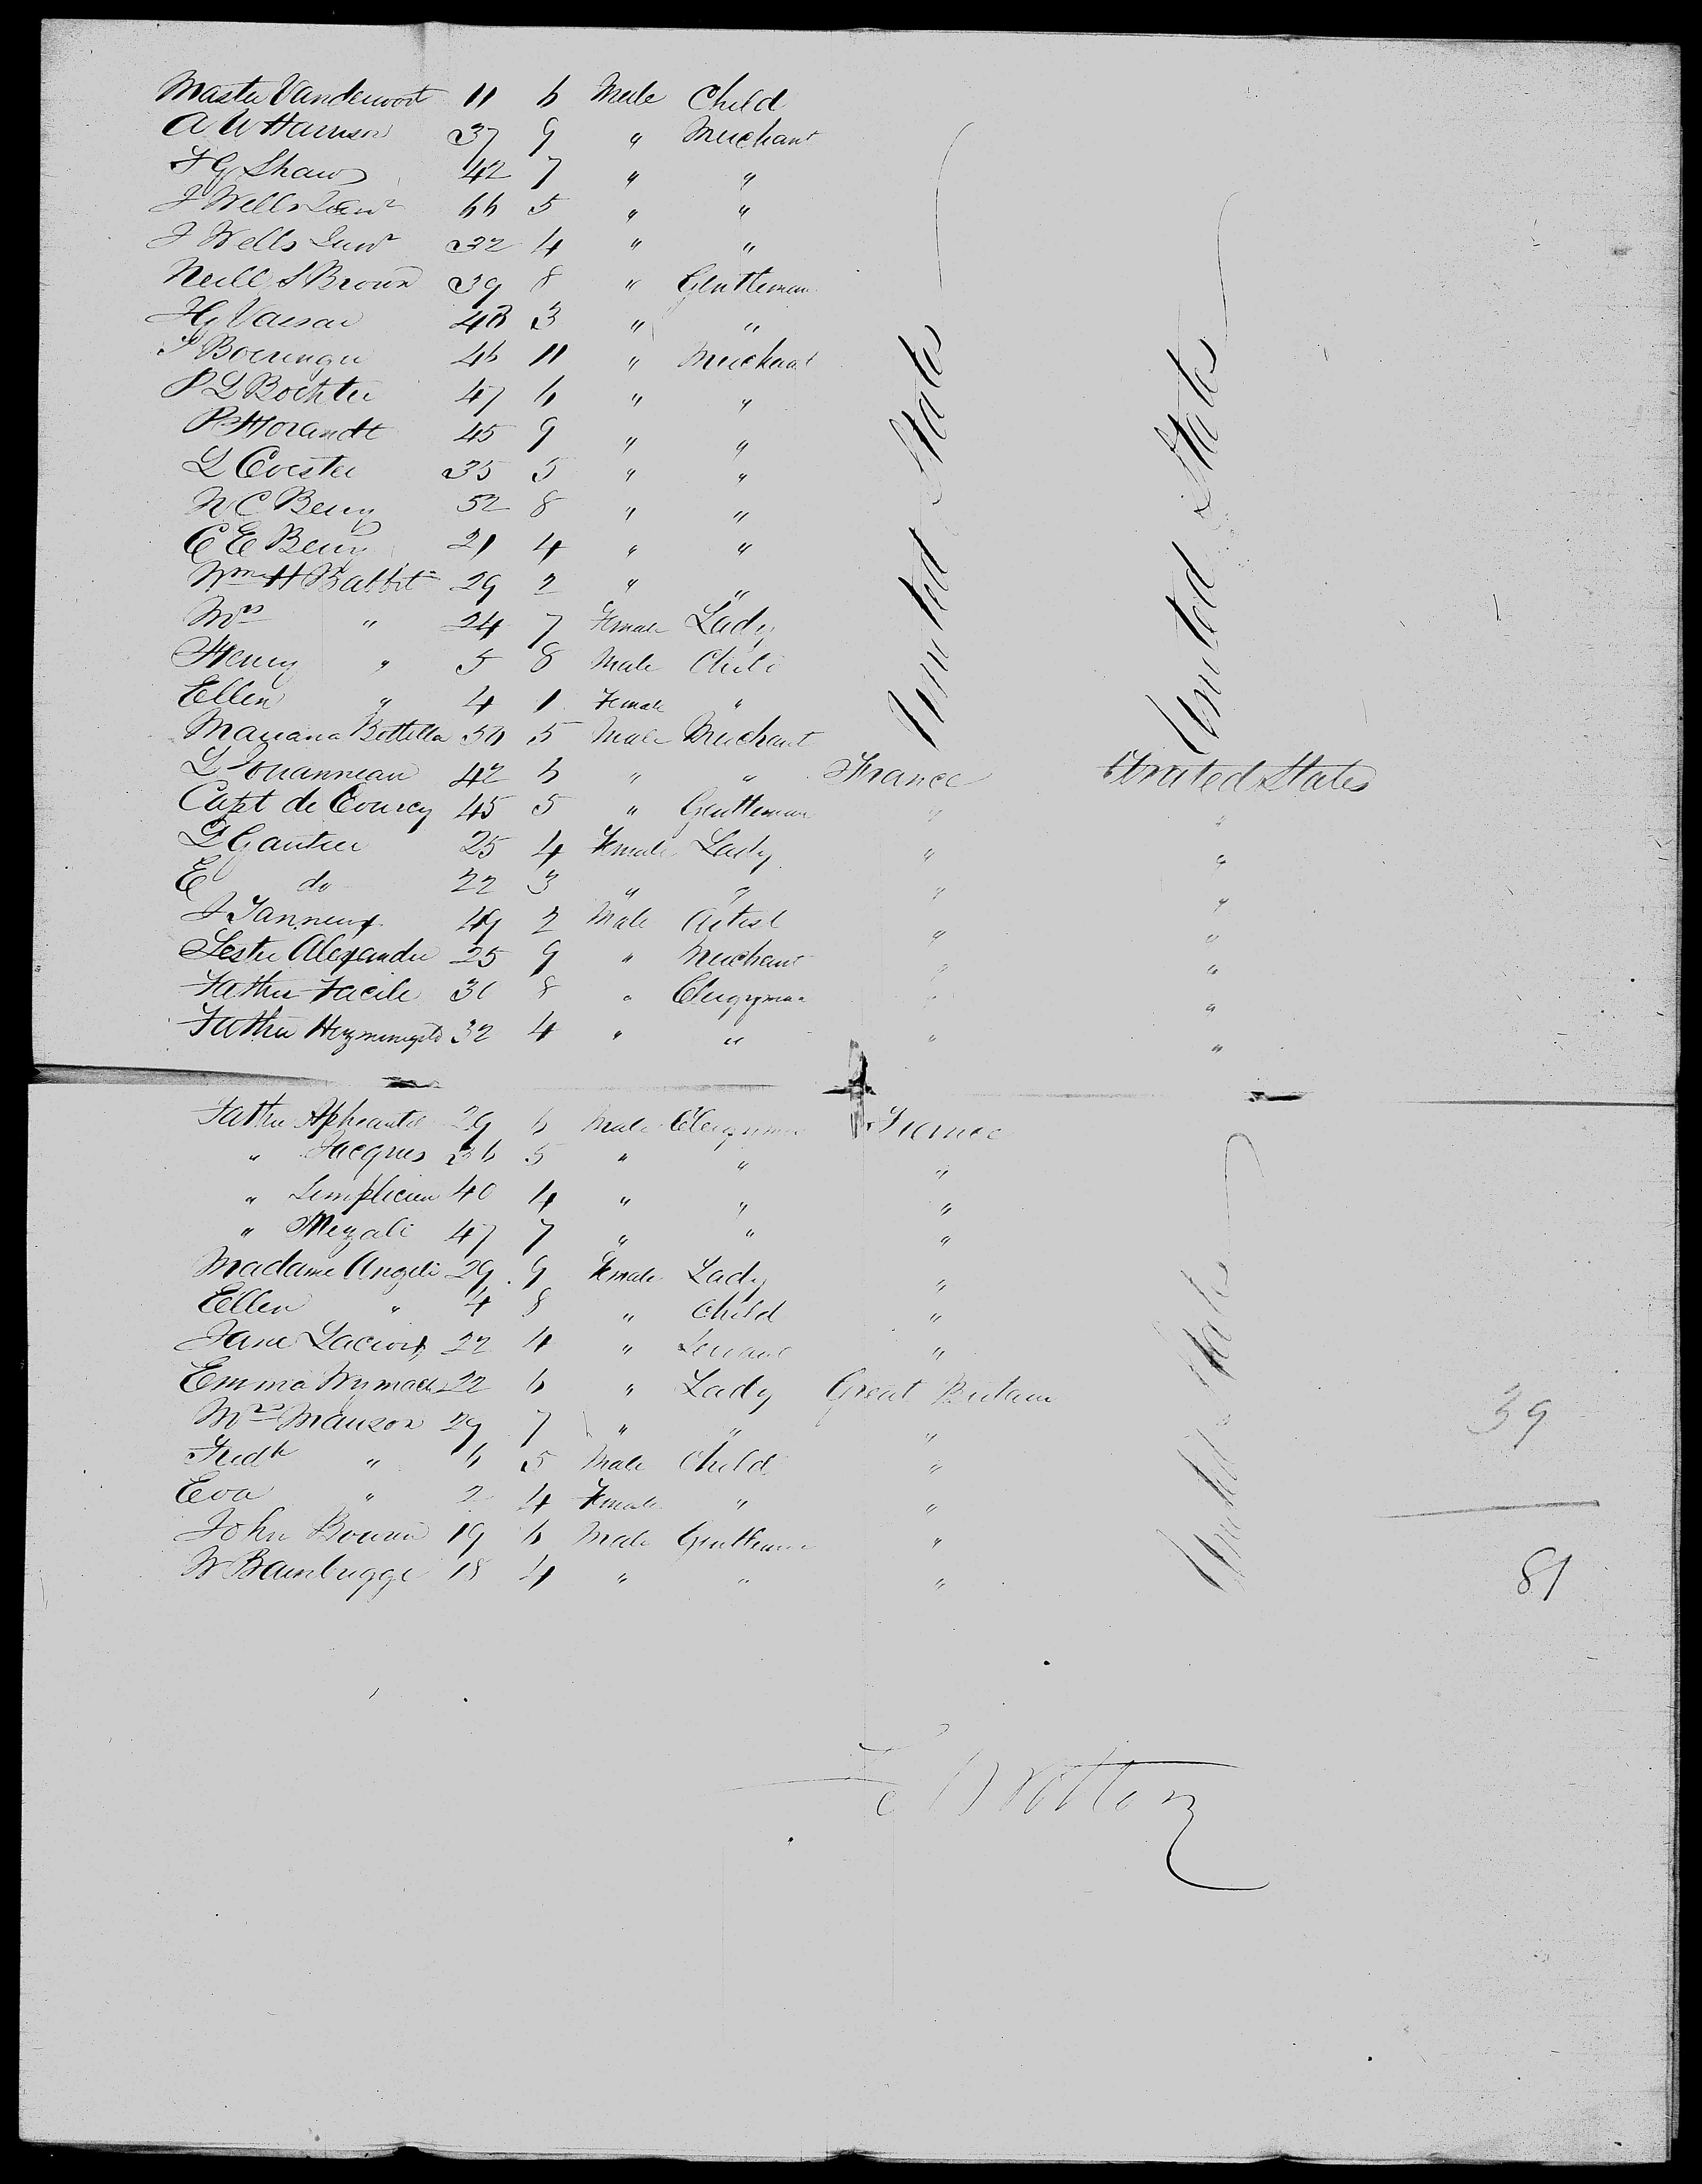 Master Vandervoort 11 6 Male Child
A W Harrison 37 9 " Merchant
F G Shaw 42 7 " "
J Wells Senr 66 5 " "
J Wells Junr 32 4 " "
Neill S Brown 39 8 " Gentleman
H G Vassar 48 3 " "
Boeringer 46 11 " Merchant
P L Bochter 47 6 " "
P Morandt 45 9 " "
L Coester 35 5 " "
N C Berry 52 8 " "
C E Berry 21 4 " "
Wm H Babbit 29 2 " "
Mrs " 24 7 Female Lady
Henry " 5 8 Male Child
Ellen " 4 1 Female "
United States United States
Mariana Bottella 50 5 Male Merchant
L Jouanneau 42 6 " " France United States
Capt de Courcy 45 5 " Gentleman " "
L Gautier 25 4 Female Lady " "
E do 22 3 " " " "
J Tanneux 49 2 Male Artist " "
Lester Alexander 25 9 " Merchant " "
Father Facile 30 8 " Clergyman " "
Father 32 4 " " " "
Father 29 6 Male Clergyman France
" Jacques 36 5 " " "
" Simplicien 40 4 " " "
" 47 7 " " "
Madame Angeli 29 9 Female Lady "
Ellen " 4 8 " Child "
Jane Lacroix 22 4 " Servant "
Emma Wymack 22 6 " Lady Great Britain
Mrs Manson 29 7 " " "
Fredk " 6 5 Male Child "
Eva " 2 4 Female " "
John Bowen 19 6 Male Gentleman "
W Bainbrigge 18 4 " " "
United States
39
81
Wotton